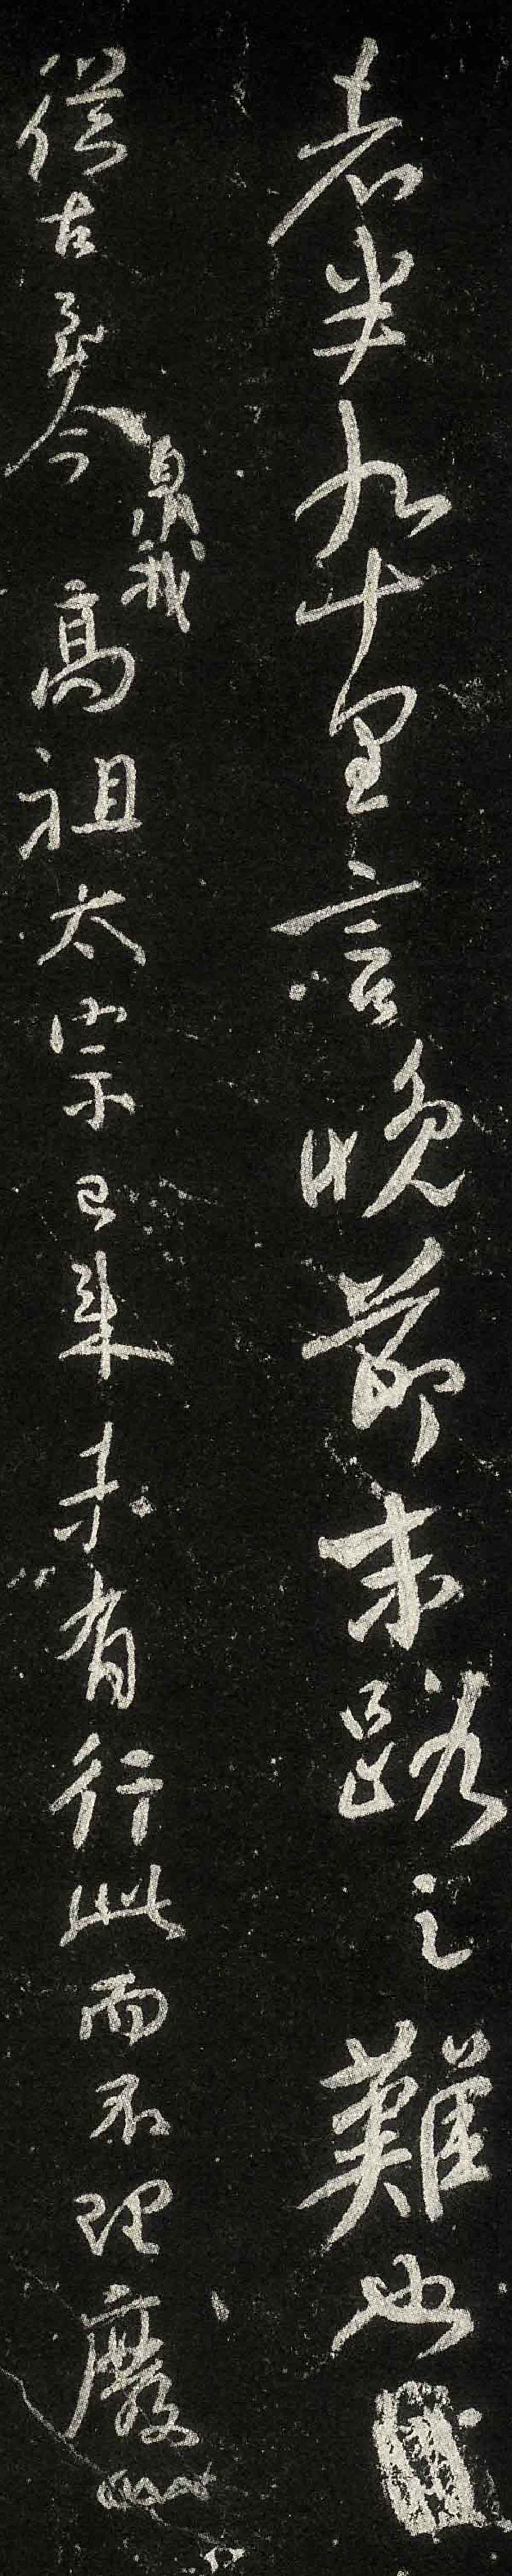 者半九十里言晚節末路之難也
臮我
從古至今高祖太宗已來未有行此而不理廢